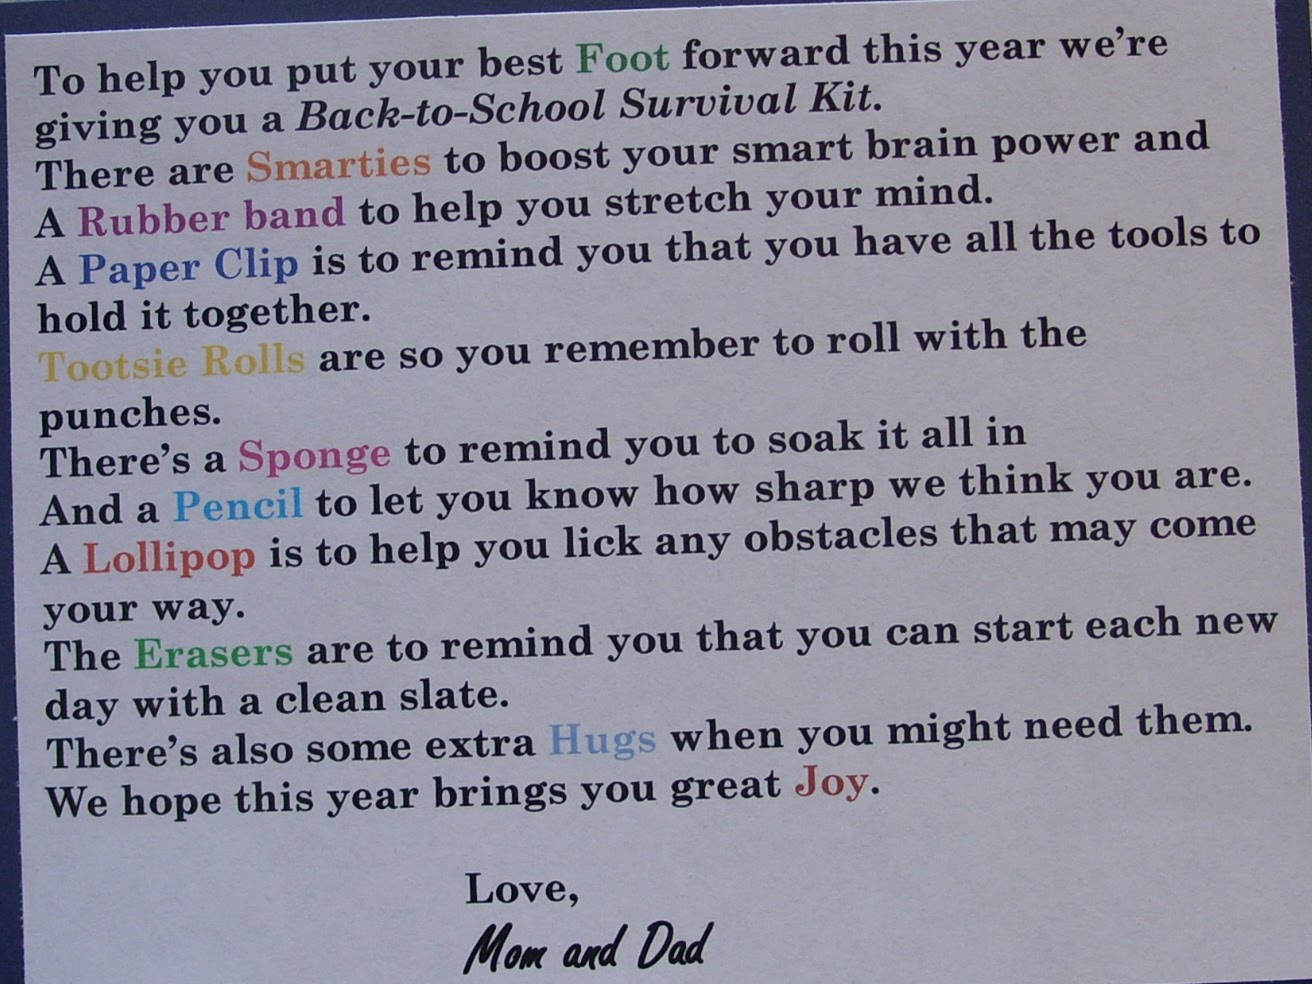 To help you put your best Foot forward this year we're
giving you a Back-to-School Survival Kit.
There are Smarties to boost your smart brain power and
A Rubber band to help you stretch your mind.
A Paper Clip is to remind you that you have all the tools to
hold it together.
Tootsie Rolls are so you remember to roll with the
punches.
There's a Sponge to remind you to soak it all in
And a Pencil to let you know how sharp we think you are.
A Lollipop is to help you lick any obstacles that may come
your way.
The Erasers are to remind you that you can start each new
day with a clean slate.
There's also some extra Hugs when you might need them.
We hope this year brings you great Joy.
Love,
Mom and Dad